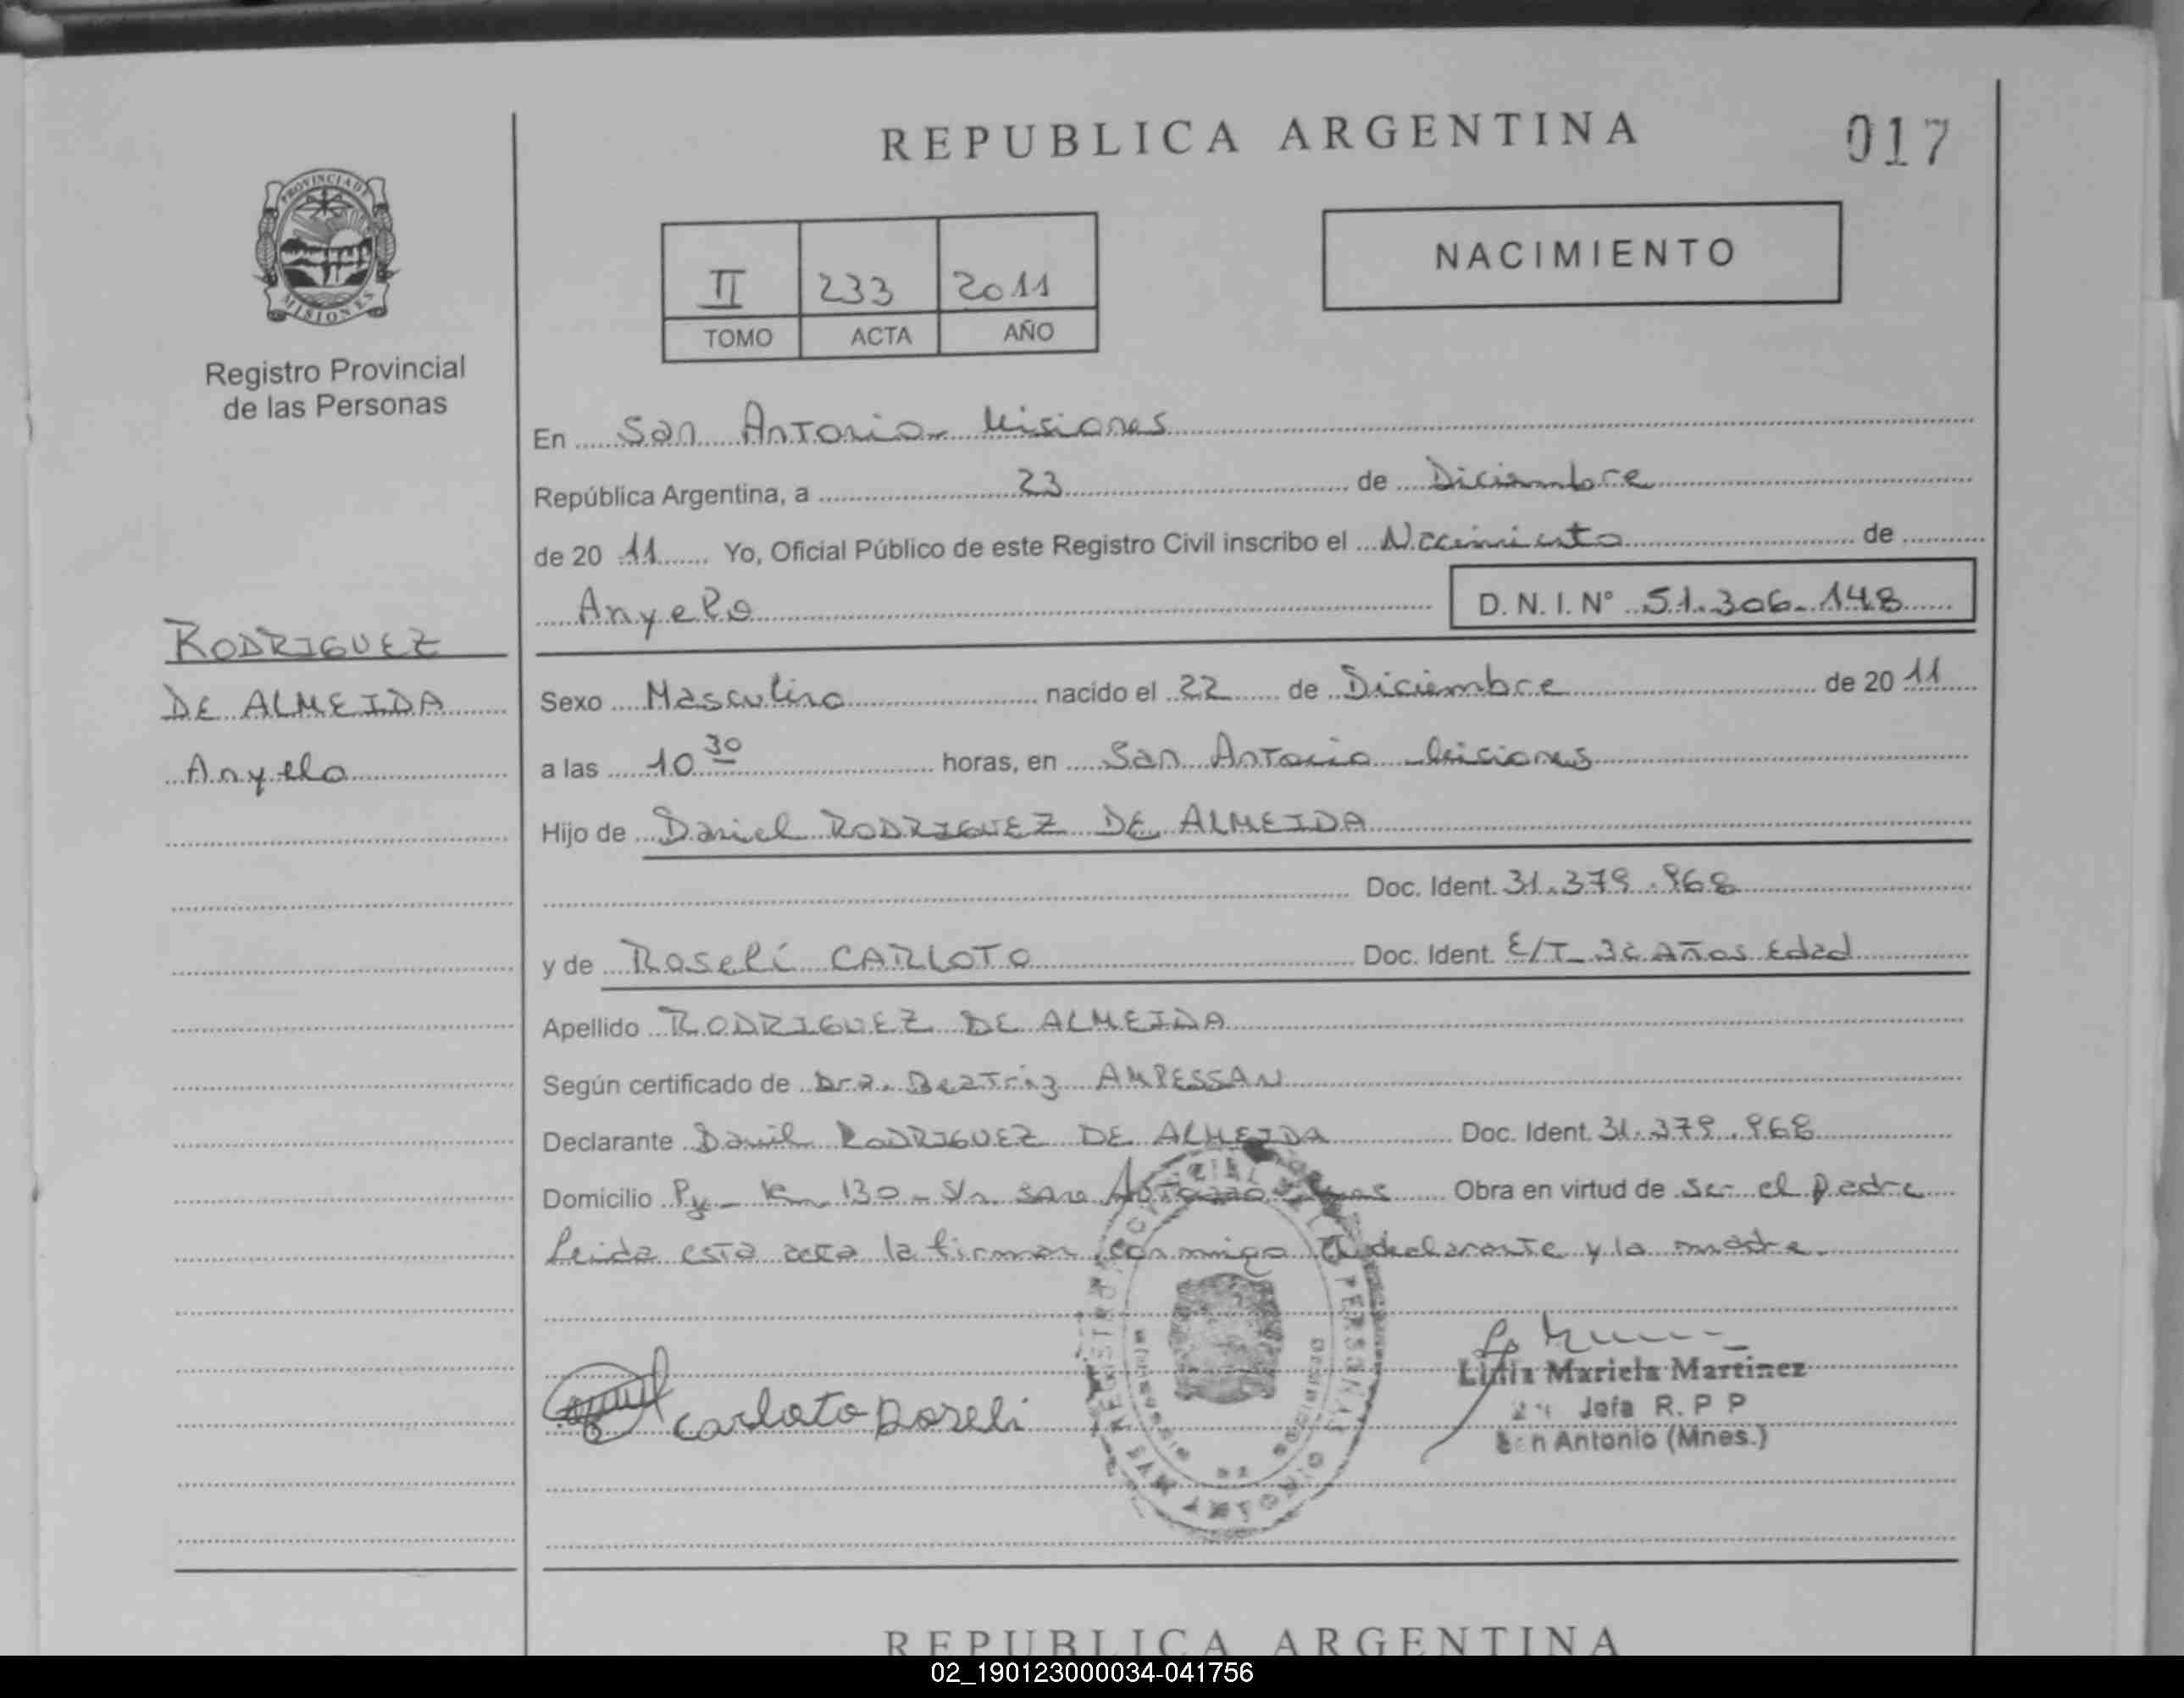 REPUBLICA ARGENTINA
017
PROVINCIA DE
MISIONES
Registro Provincial
de las Personas
II 233 2011
TOMO ACTA AÑO
NACIMIENTO
En San Antonio Misiones
República Argentina, a 23 de Diciembre
de 20 11 Yo, Oficial Público de este Registro Civil inscribo el Nacimiento de
Anyelo D. N. I. N° 51.306.148
RODRIGUEZ
DE ALMEIDA
Anyelo
Sexo Masculino nacido el 22 de Diciembre de 20 11
a las 10 30 horas, en San Antonio Misiones
Hijo de Daniel RODRIGUEZ DE ALMEIDA
Doc. Ident. 31.379.968
y de Roseli CARLOTO Doc. Ident. E/T Años Edad
Apellido RODRIGUEZ DE ALMEIDA
Según certificado de Dra. Beatriz AMPESSAN
Declarante Daniel RODRIGUEZ DE ALMEIDA Doc. Ident. 31.379.968
Domicilio Km 130 - S/n San Antonio Obra en virtud de ser el padre
Leida esta acta la firman conmigo el declarante y la madre.
Carloto Roseli
Lidia Mariela Martinez
Jefa R. P P
San Antonio (Mnes.)
REPUBLICA ARGENTINA
02_190123000034-041756